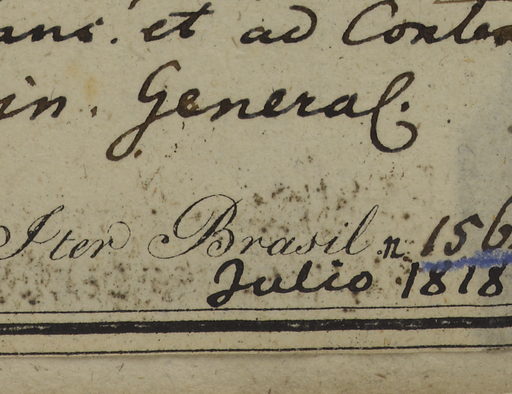 ans. et ad Conten
in. General.
Iter Brasil n. 156
Julio 1818